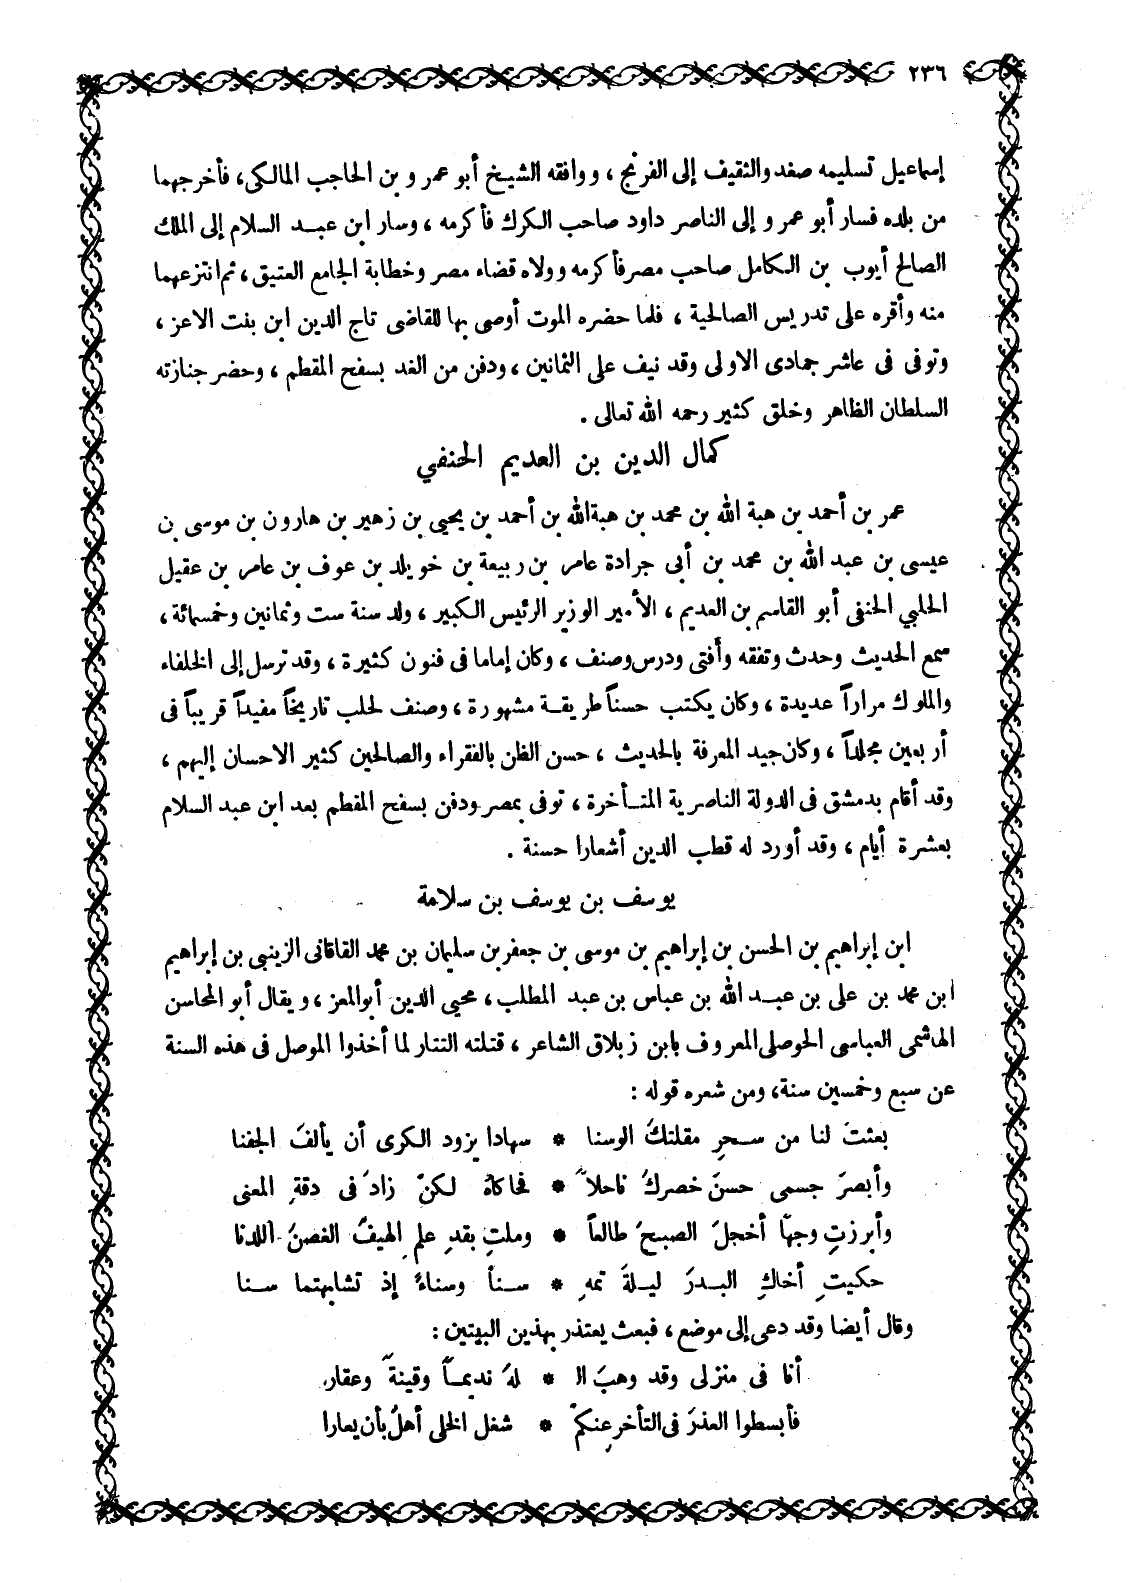 ٢٣٦
إسماعيل تسليمه صفد والثقيف إلى الفرنج ، ووافقه الشيخ أبو عمرو بن الحاجب المالكى، فأخرجهما
من بلده فسار أبو عمرو إلى الناصر داود صاحب الكرك فأكرمه ، وسار ابن عبد السلام إلى الملك
الصالح أيوب بن الكامل صاحب مصر فأكرمه وولاه قضاء مصر وخطابة الجامع العتيق ، ثم انتزعهما
منه وأقره على تدريس الصالحية ، فلما حضره الموت أوصى بها للقاضى تاج الدين ابن بنت الاعز ،
وتوفى فى عاشر جمادى الاولى وقد نيف على الثمانين ، ودفن من الغد بسفح المقطم ، وحضر جنازته
السلطان الظاهر وخلق كثير رحمه الله تعالى .
كمال الدين بن العديم الحنفي
عمر بن أحمد بن هبة الله بن محمد بن هبة الله بن أحمد بن يحيى بن زهير بن هارون بن موسى بن
عيسى بن عبد الله بن محمد بن أبى جرادة عامر بن ربيعة بن خويلد بن عوف بن عامر بن عقيل
الحلبي الحنفى أبو القاسم بن العديم ، الأمير الوزير الرئيس الكبير ، ولد سنة ست وثمانين وخمسمائة ،
سمع الحديث وحدث وتفقه وأفتى ودرس وصنف ، وكان إماما فى فنون كثيرة ، وقد ترسل إلى الخلفاء
والملوك مراراً عديدة ، وكان يكتب حسناً طريقة مشهورة ، وصنف لحلب تاريخاً مفيداً قريباً فى
أربعين مجلداً ، وكان جيد المعرفة بالحديث ، حسن الظن بالفقراء والصالحين كثير الاحسان إليهم ،
وقد أقام بدمشق فى الدولة الناصرية المتأخرة ، توفى بمصر ودفن بسفح المقطم بعد ابن عبد السلام
بعشرة أيام ، وقد أورد له قطب الدين أشعارا حسنة .
يوسف بن يوسف بن سلامة
ابن إبراهيم بن الحسن بن إبراهيم بن موسى بن جعفر بن سليمان بن محمد القاقانى الزينبى بن إبراهيم
ابن محمد بن على بن عبد الله بن عباس بن عبد المطلب ، محيى الدين أبو المعز ، ويقال أبو المحاسن
الهاشمى العباسى الموصلى المعروف بابن زبلاق الشاعر ، قتلته التتار لما أخذوا الموصل فى هذه السنة
عن سبع وخمسين سنة ، ومن شعره قوله :
بعثتَ لنا من سحرِ مقلتكَ الوسنا * سهادا يزود الكرى أن يألفَ الجفنا
وأبصرَ جسمى حسنَ خصركَ ناحلاً * فحاكاهُ لكنْ زادَ فى دقةِ المعنى
وأبرزتِ وجهاً أخجلَ الصبحَ طالعاً * وملتِ بقدٍ علم الهيفَ الغصنَ اللدنا
حكيتِ أخاكِ البدرَ ليلةَ تمهِ * سناً وسناءً إذ تشابهتما سنا
وقال أيضا وقد دعى إلى موضع ، فبعث يعتذر بهذين البيتين :
أنا فى منزلى وقد وهبَ الـ * لهَ نديماً وقينةً وعقارا
فأبسطوا العذرَ فى التأخر عنكمْ * شغل الخلى أهلُ بأن يعارا